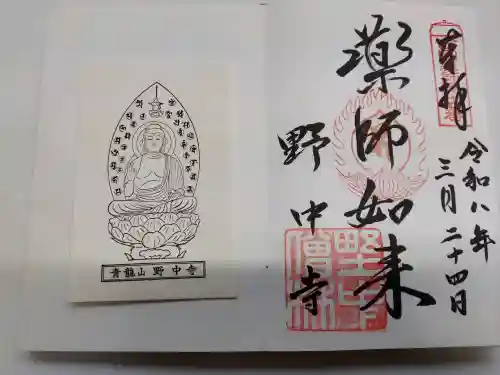 奉拝
令和八年
三月二十四日
藥師如来
野中寺
青龍山 野中寺